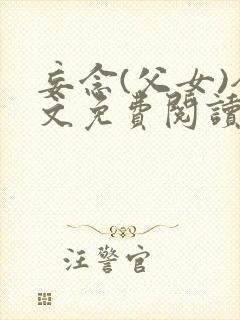 妄念(父女)
文免費閱讀
汪警官